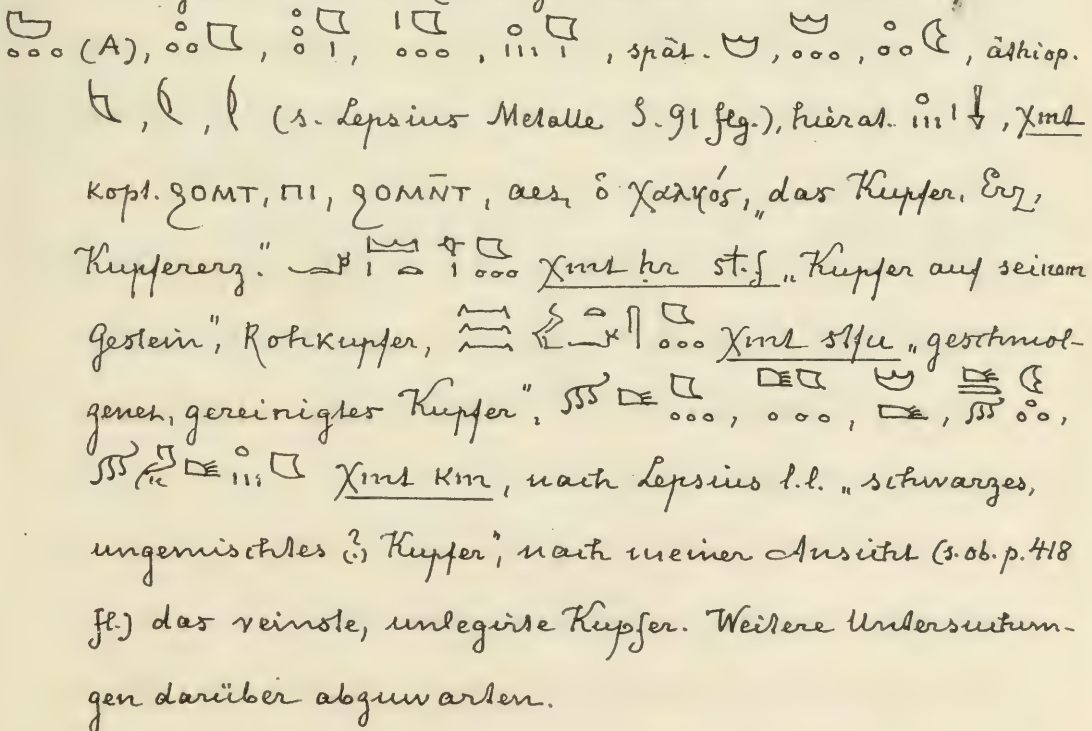 (A), , , , , spät. , , , äthiop.
, , (s. Lepsius Metalle S. 91 flg.), hierat. , χmt
kopt. ϩⲟⲙⲧ, ⲡⲓ, ϩⲟⲙⲛ̄ⲧ, aes, ὁ χαλκός, „das Kupfer, Erz,
Kupfererz." χmt ḥr st.f „Kupfer auf seinem
Gestein", Rohkupfer, χmt stfu „geschmol-
genes, gereinigtes Kupfer", , , , ,
χmt Km, nach Lepsius l.l. „schwarzes,
ungemischtes (?) Kupfer", nach meiner Ansicht (s. ob. p. 418
fl.) das reinste, unlegirte Kupfer. Weitere Untersuchun-
gen darüber abzuwarten.